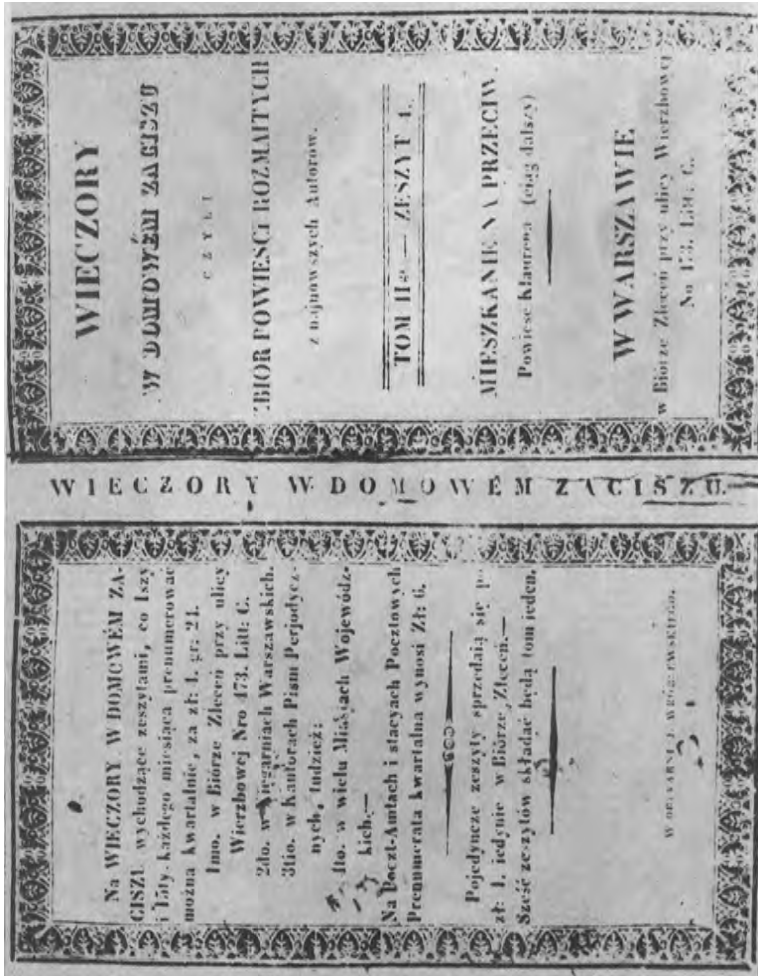 WIECZORY
W DOMOWÉM ZACISZU
CZYLI
ZBIOR POWIEŚCI ROZMAITYCH
z najnowszych Autorów.
TOM II — ZESZYT 4.
MIESZKANIE NA PRZECIW
Powieść Klaurena (ciąg dalszy)
W WARSZAWIE
w Biórze Zleceń przy ulicy Wierzbowej
No 473. Litt: C.
WIECZORY W DOMOWÉM ZACISZU.
Na WIECZORY W DOMOWÉM ZA-
CISZU wychodzące zeszytami, co 1szy
i 15ty każdego miesiąca prenumerować
można kwartalnie, za zł: 4. gr: 24.
1mo. w Biórze Zleceń przy ulicy
Wierzbowej Nro 473. Litt: C.
2do. w Xięgarniach Warszawskich.
3tio. w Kantorach Pism Perjodycz-
nych, tudzież;
4to. w wielu Miastach Wojewódz-
kich.—
Na Poczt-Amtach i stacyach Pocztowych
Prenumerata kwartalna wynosi Zł: 6.
Pojedyncze zeszyty sprzedają się po
zł: 1. iedynie w Biórze Zleceń.—
Sześć zeszytów składać będą tom ieden.
W DRUKARNI J. WRÓBLEWSKIEGO.